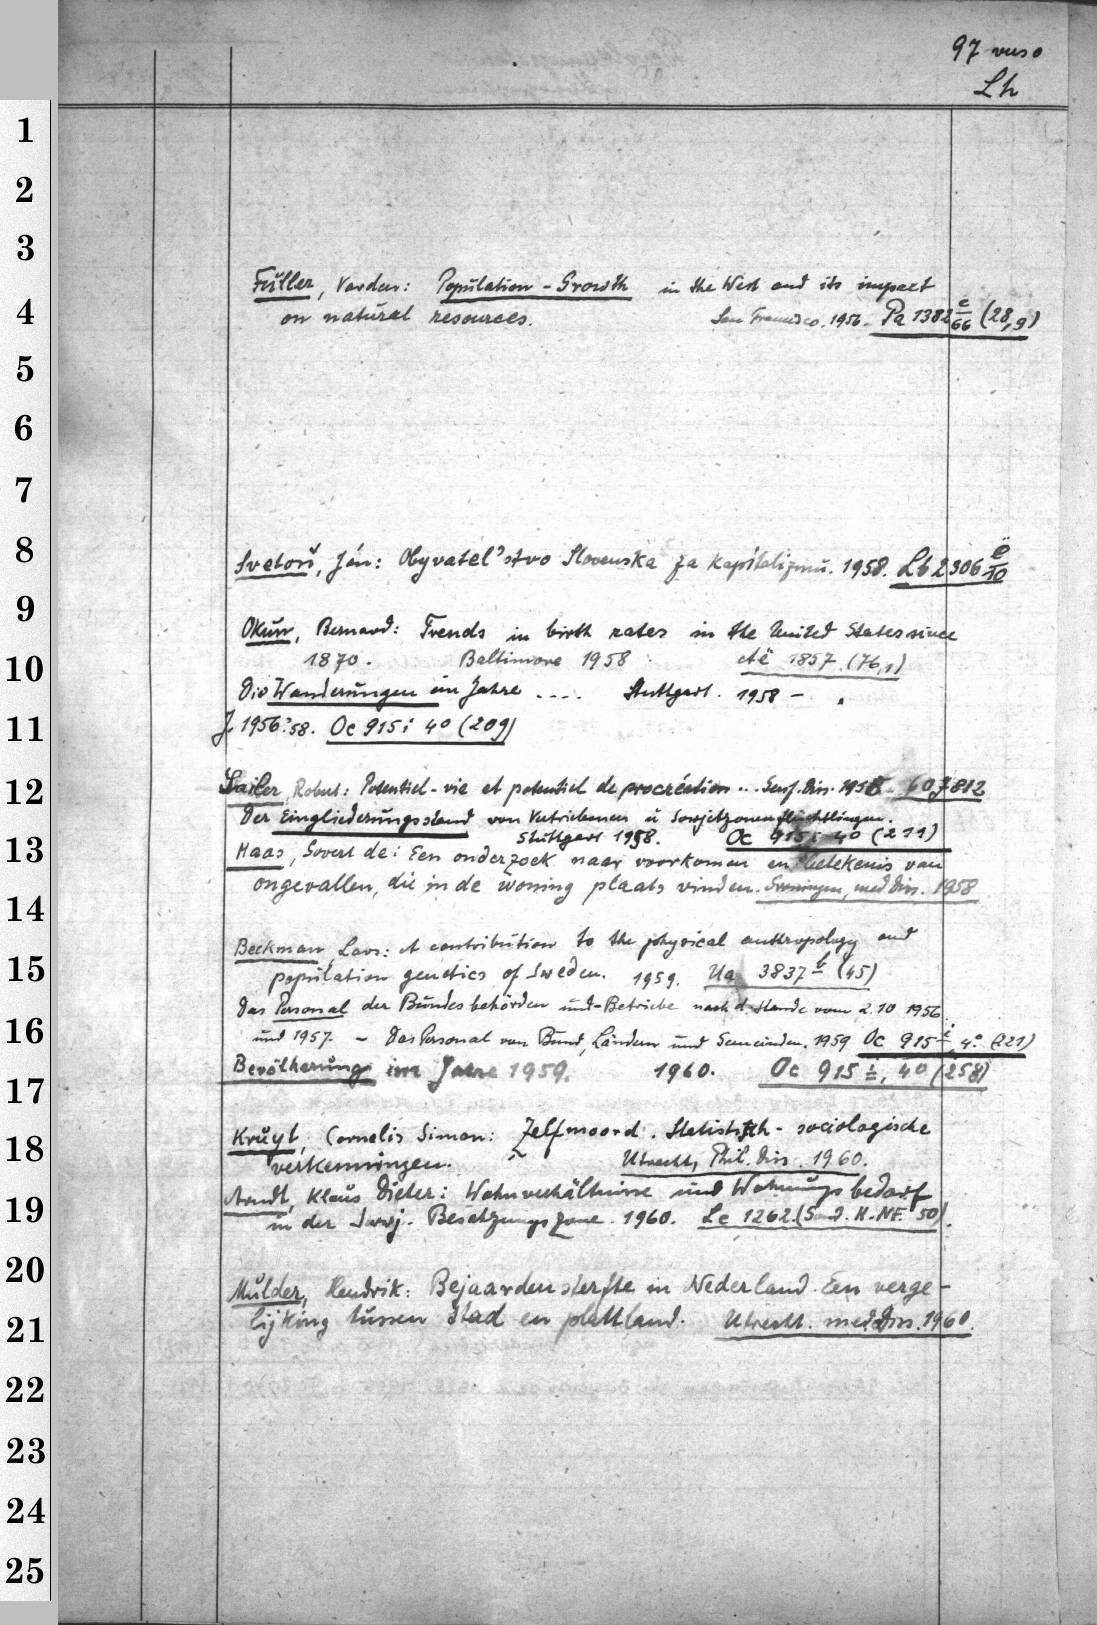 97 verso
Lh
1
2
3
Füller, Varden: Population-Growth in the West and its impact
4
on natural resources. San Francisco. 1956. Pa 1382 c/66 (28,9)
5
6
7
8
Svetoň, Ján: Obyvatel'stvo Slovenska za kapitalizmu. 1958. Lb 2306 /10
9
Okun, Bernard: Trends in birth rates in the United States since
10
1870. Baltimore 1958 1857 (76,1)
Die Wanderungen im Jahre .... Stuttgart. 1958 - .
11
J. 1956.'58. Oc 915 i 4° (209)
12
Robert: Potentiel-vie et potentiel de procréation... Genf. Diss. 1958 607812
Der Eingliederungsstand von Vertriebenen u Sowjetzonenflüchtlingen.
Stuttgart 1958. Oc 915 i 4° (211)
13
Haas, Govert de: Een onderzoek naar voorkomen en betekenis van
ongevallen, die in de woning plaats vinden. Groningen, med Diss. 1958
14
Beckman, Lars: A contribution to the physical anthropology and
15
population genetics of Sweden. 1959. Ua 3837 b (45)
Das Personal der Bundesbehörden und-Betriebe nach d. Stande vom 2.10 1956
16
und 1957. - Das Personal von Bund, Ländern und Gemeinden. 1959 Oc 915 i, 4° (221)
17
Bevölkerung im Jahre 1959. 1960. Oc 915 i, 4° (258)
18
Kruyt, Cornelis Simon: Zelfmoord. Statistisch-sociologische
verkenningen. Utrecht, Phil. Diss. 1960.
19
Arndt, Klaus Dieter: Wohnverhältnisse und Wohnungsbedarf
in der Sowj. Besatzungszone. 1960. Lc 1262. (Sond. H. NF. 50).
20
Mulder, Hendrik: Bejaardensterfte in Nederland. Een verge-
21
lijking tussen stad en plattland. Utrecht. med. Diss. 1960.
22
23
24
25